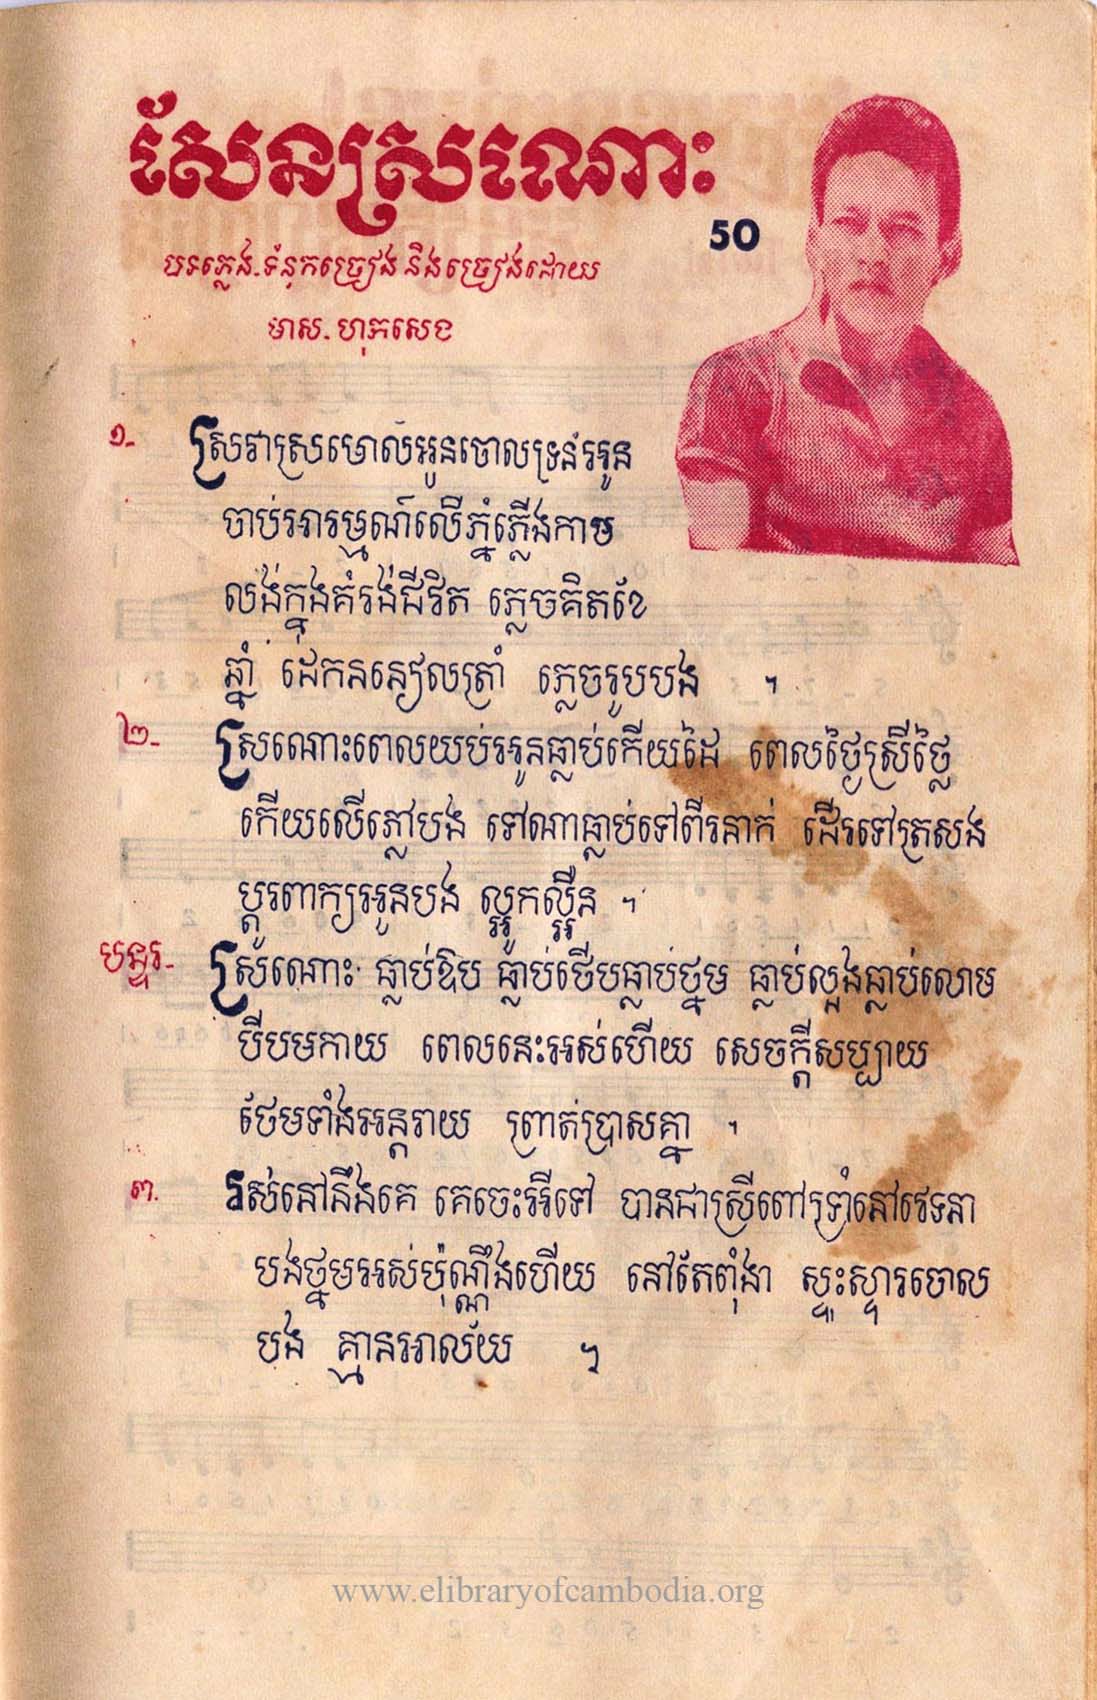 សែនស្រណោះ
50
បទភ្លេង.ទំនុកច្រៀង និងច្រៀងដោយ
មាស. ហុកសេង
១- ស្រវាស្រមោលអូនចោលទ្រនំរអូន
ចាប់អារម្មណ៍លើភ្នំភ្លើងកាម
លង់ក្នុងគំរង់ជីវិត ភ្លេចគិតខែ
ឆ្នាំ ដេកននៀលត្រាំ ភ្លេចរូបបង ។
២- ស្រណោះពេលយប់អូនធ្លាប់កើយដៃ ពេលថ្ងៃស្រីថ្លៃ
កើយលើភ្លៅបង ទៅណាធ្លាប់ទៅពីរនាក់ ដើរទៅត្រសង
ប្តូរពាក្យអូនបង ល្អូកល្អឺន ។
បន្ទរ- ស្រណោះ ធ្លាប់ឱប ធ្លាប់ថើបធ្លាប់ថ្នម ធ្លាប់ល្អងធ្លាប់លោម
បីបមកាយ ពេលនេះអស់ហើយ សេចក្តីសប្បាយ
ថែមទាំងអន្តរាយ ព្រាត់ប្រាសគ្នា ។
៣. រស់នៅនឹងគេ គេចេះអីទៅ បានជាស្រីពៅទ្រាំនៅវេទនា
បងថ្នមអស់ប៉ុណ្ណឹងហើយ នៅតែពុំងា ស្ទុះស្ទារចោល
បង គ្មានអាល័យ ៕
www.elibraryofcambodia.org